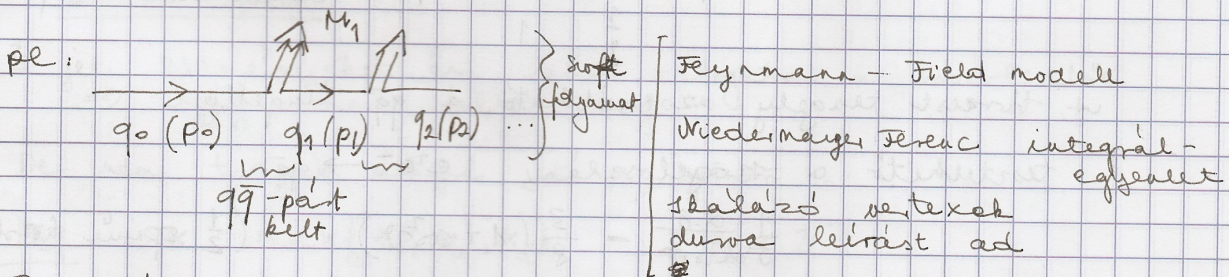 pl:
M₁
q₀ (p₀) q₁ (p₁) q₂ (p₂) ...
qq̄ - párt
kelt
soft
folyamat
Feynmann - Field modell
Niedermayer Ferenc integrál-
egyenlet
skálázó vertexek
durva leírást ad